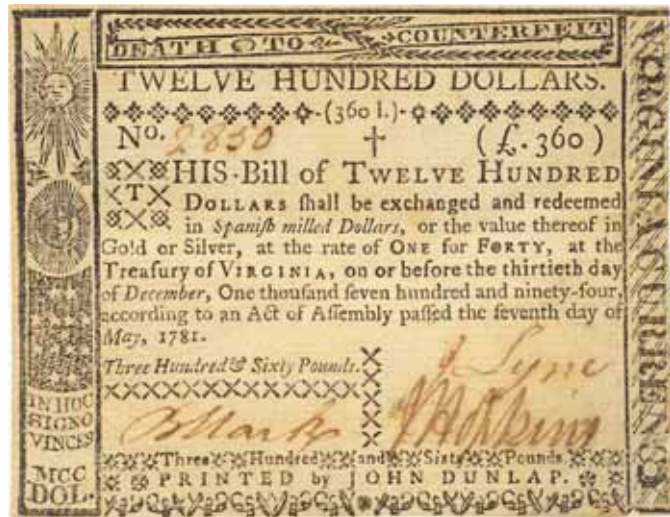 DEATH TO COUNTERFEIT
TWELVE HUNDRED DOLLARS.
(360 l.)
No. 2850 † (£. 360)
THIS Bill of TWELVE HUNDRED
DOLLARS ſhall be exchanged and redeemed
in Spaniſh milled Dollars, or the value thereof in
Gold or Silver, at the rate of ONE for FORTY, at the
Treaſury of VIRGINIA, on or before the thirtieth day
of December, One thouſand ſeven hundred and ninety-four,
according to an Act of Aſſembly paſſed the ſeventh day of
May, 1781.
Three Hundred & Sixty Pounds.
J Lyne
J Hopkins
Three Hundred and Sixty Pounds.
PRINTED by JOHN DUNLAP.
IN HOC
SIGNO
VINCES
MCC
DOL.
VIRGINIA CURRENCY